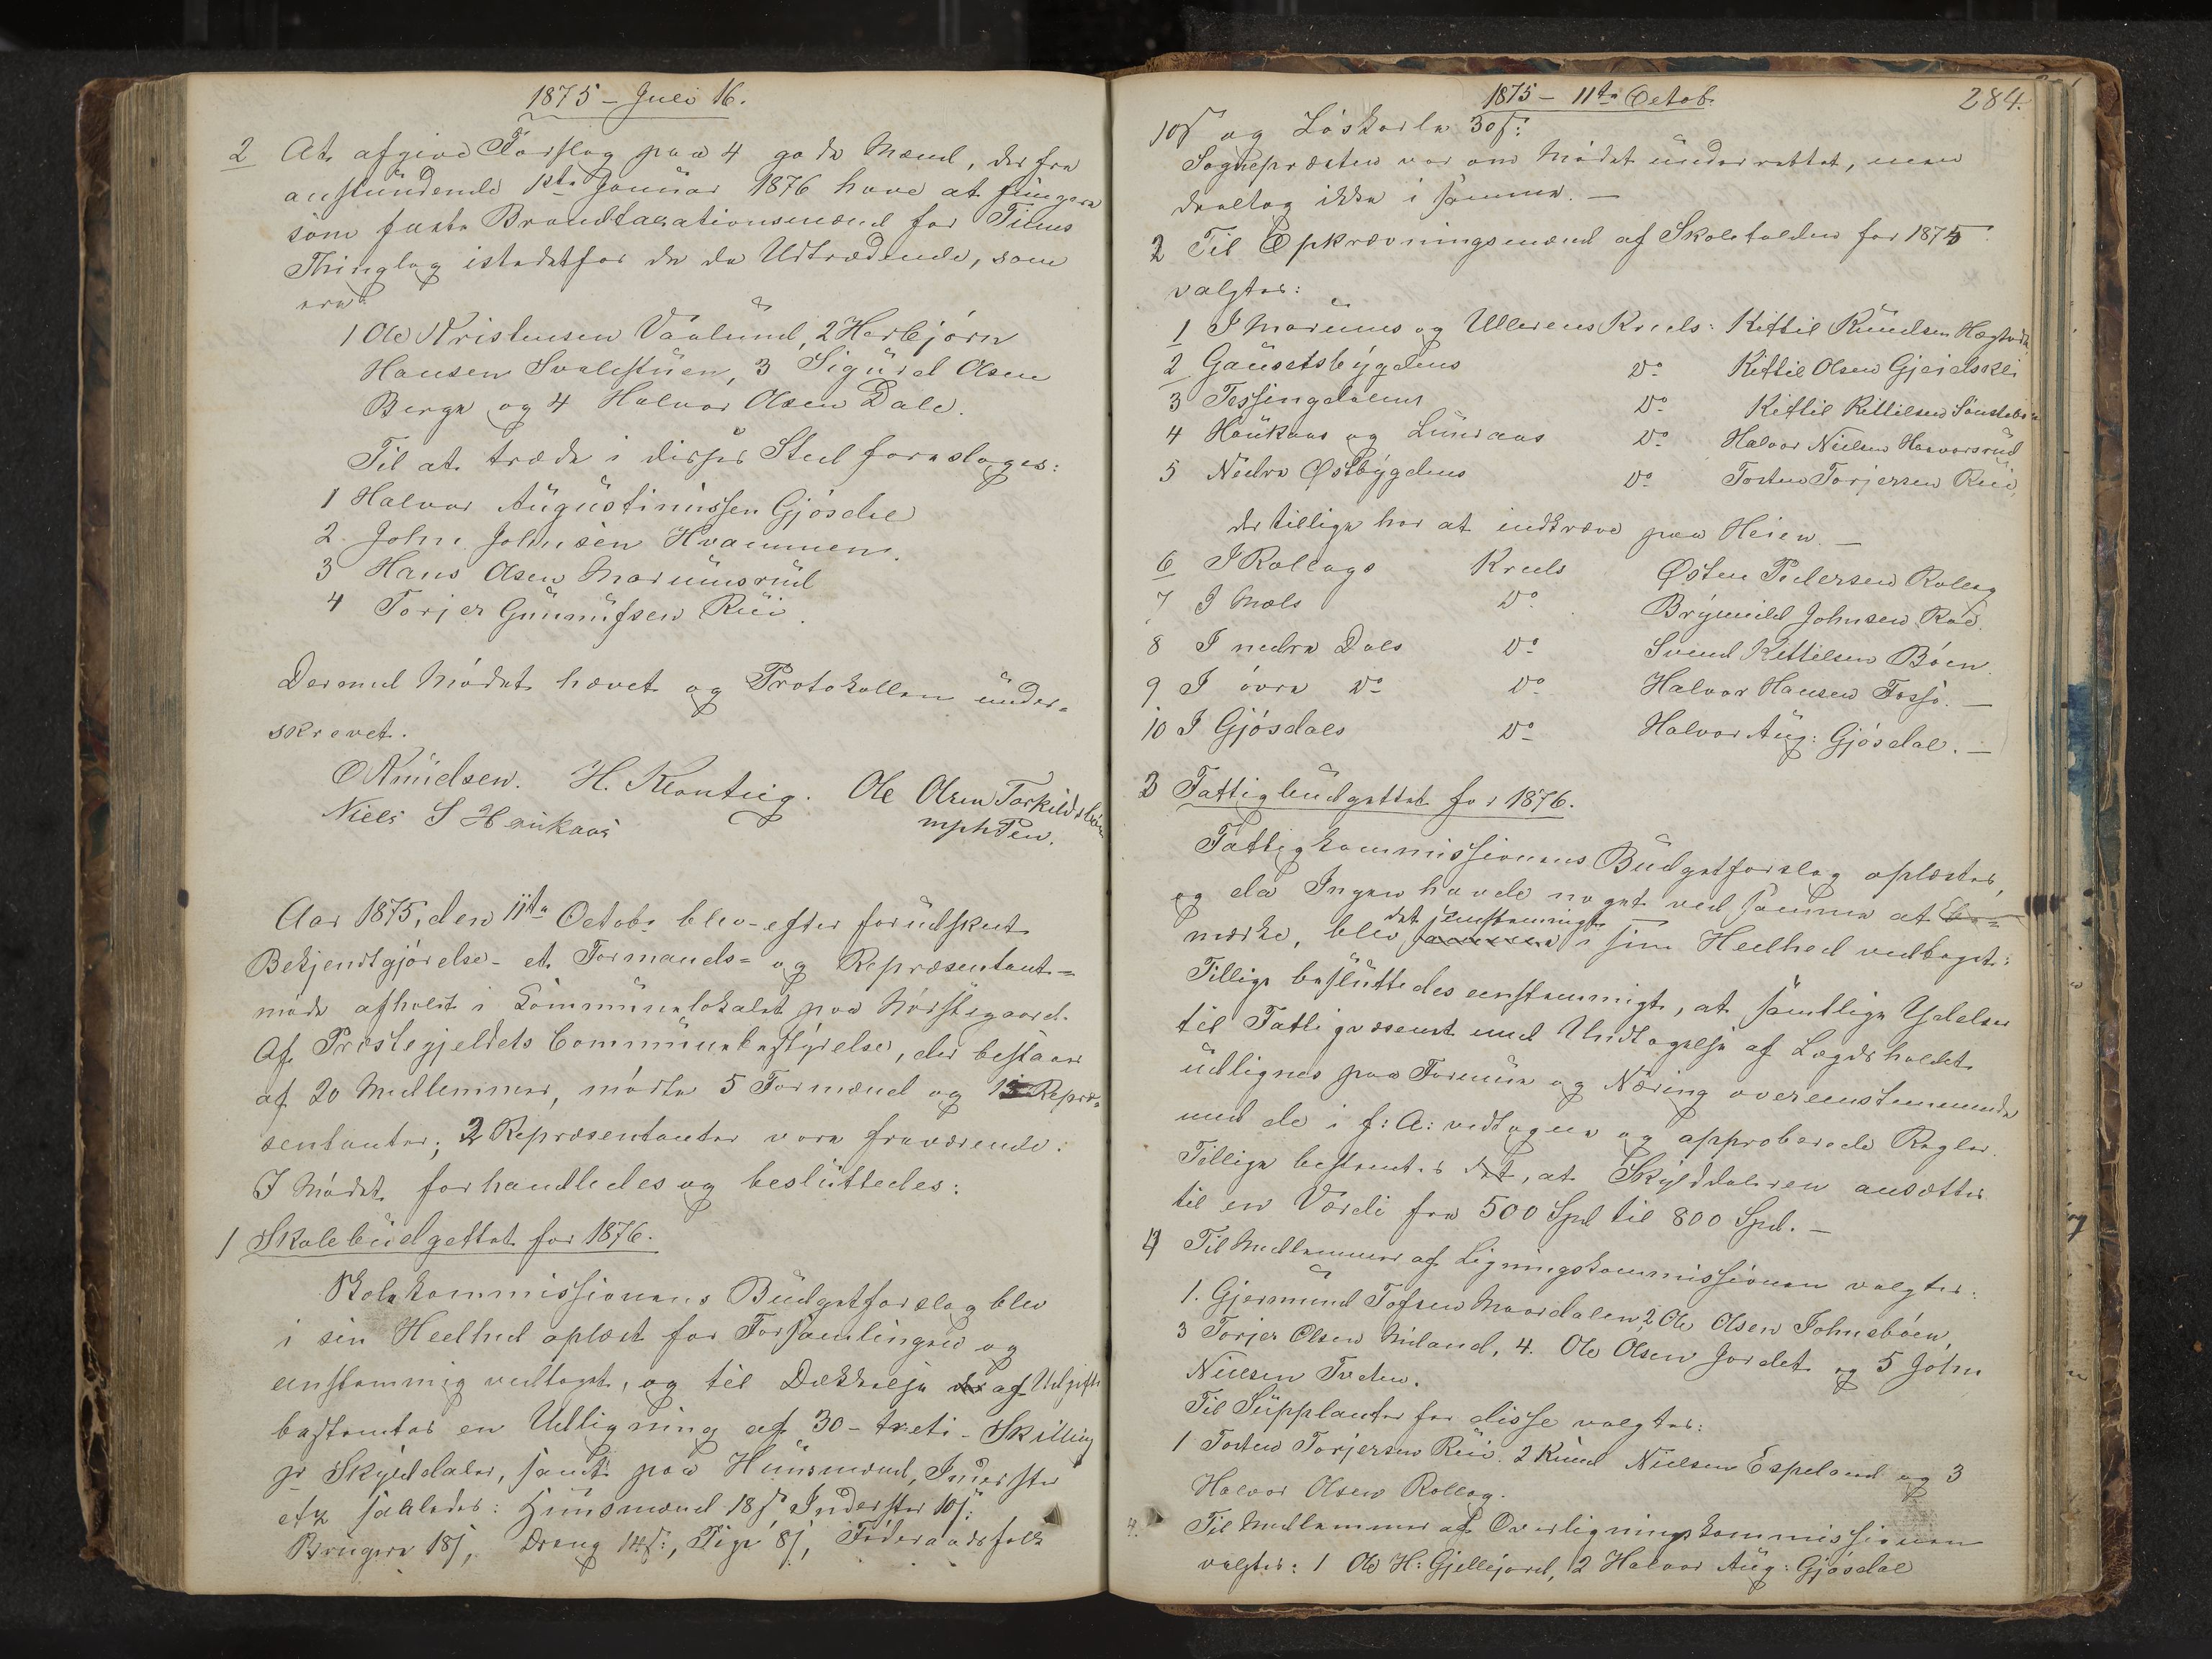 1875 – Juli 16.
2 At afgive Forslag paa 4 gode Mænd, der fra
anstundende 1ste Januar 1876 have at fungere
som faste Brandtaxationsmænd for Tinns
Thinglag istedetfor de da Udtrædende, som
ere
1 Ole Kristensen Vaalund, 2 Herbjørn
Hansen Svalestuen, 3 Sigurd Olsen
Berge og 4 Halvor Olsen Dale.
Til at træde i disses Sted foresloges:
1 Halvor Augustinussen Gjøsdal
2. John Johnsen Hvammen.
3 Hans Olsen Marumsrud
4 Torjer Gunnufsen Rui.
Dermed Mødet hævet og Protokollen under-
skrevet.
O Knudsen. H. Kløntvig. Ole Olsen Torkildsbøen
Niels S Haukaas mph Pen.
Aar 1875, den 11te Octobr blev – efter forudskeet
Bekjendtgjørelse – et Formands- og Repræsentant-
møde afholdt i Communelokalet paa Mørstegaard.
Af Præstegjeldets Communebestyrelse, der bestaar
af 20 Medlemmer, mødte 5 Formænd og 13 Repræ-
sentanter; 2 Repræsentanter vare fraværende.
I Mødet forhandledes og besluttedes:
1 Skolebudgettet for 1876.
Skolekommissionens Budgetforslag blev
i sin Heelhed oplæst for Forsamlingen og
eenstemmig vedtaget, og til Dækkelse af Udgifte
bestemtes en Udligning af 30 – treti – Skilling
pr Skylddaler, samt paa Huusmænd, Inderster
etc saaledes: Huusmænd 18 s, Inderster 10 s:
Brugere 18 s, Dreng 14 s:, Pige 8 s, Føderaadsfolk
1875 – 11te Octob. 284.
10 s og Løskarle 30 s:
Sognepræsten var om Mødet underrettet, men
deeltog ikke i samme. –
2 Til Opkrævningsmænd af Skoletolden for 1875
valgtes:
1 I Marums og Ullerens Kreds: Kittil Knudsen Hægtvedt
2 Gausetbygdens Do Kittil Olsen Gjeidsklei
3 Tessingdalens Do Kittil Kittilsen Sønstebø
4 Haukaas og Lunraas Do Halvor Nielsen Haavorsrud
5 Nedre Østbygdens Do Torsten Torjersen Rui,
der tillige har at indkræve paa Heien. –
6 I Rollags Kreds Østen Pedersen Rollag
7 I Mæls Do Brynnild Johnsen Roe.
8 I nedre Dals Do Svend Kittilsen Bøen.
9 I øvre Do Do Halvor Hansen Fossø. –
10 I Gjøsdals Do Halvor Aug: Gjøsdal. –
3 Fattigbudgettet for 1876.
Fattigkommissionens Budgetforslag oplæstes,
og da Ingen havde noget ved samme at Be-
mærke, blev det eenstemmigt i sin Heelhed vedtaget:
Tillige besluttedes eenstemmigt, at samtlige Ydelser
til Fattigvæsenet med Undtagelse af Lægdsholdet
udlignes paa Formue og Næring overeensstemmende
med de i f: A: vedtagne og approberede Regler.
Tillige bestemtes det, at Skylddaleren ansættes
til en Værdi fra 500 Spd til 800 Spd. –
4 Til Medlemmer af Ligningskommissionen valgtes:
1. Gjermund Tofsen Maardalen, 2 Ole Olsen Johnsbøen,
3 Torjer Olsen Miland, 4. Ole Olsen Jordet og 5 John
Nielsen Tveten.
Til Supplanter for disse valgtes:
1 Torsten Torjersen Rui. 2 Knud Nielsen Espeland og 3
Halvor Olsen Rollag.
4. Til Medlemmer af Overligningskommissionen
valgtes: 1 Ole H: Gjellejord, 2 Halvor Aug: Gjøsdal